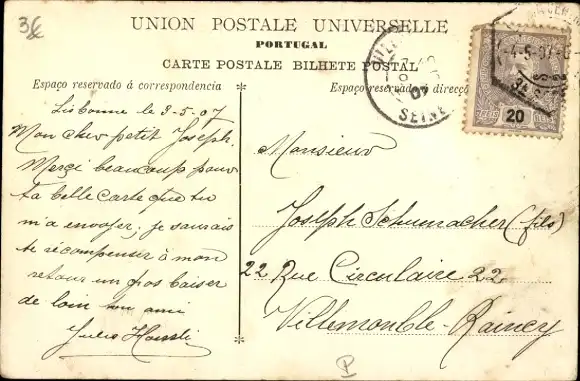 3€
UNION POSTALE UNIVERSELLE
PORTUGAL
CARTE POSTALE BILHETE POSTAL
Espaço reservado á correspondencia
Espaço reservado á direcção
Lisbonne le 3-5.07
Mon cher petit Joseph.
Merçi beaucoup pour
ta belle carte que tu
m'a envoyer, je saurais
te récompenser à mon
retour un gros baiser
de loin ton ami
Julio
Monsieur
Joseph Schumacher (fils)
22 Rue Circulaire 22
Villemomble-Raincy
20
07
SEINE
4-5-07
P